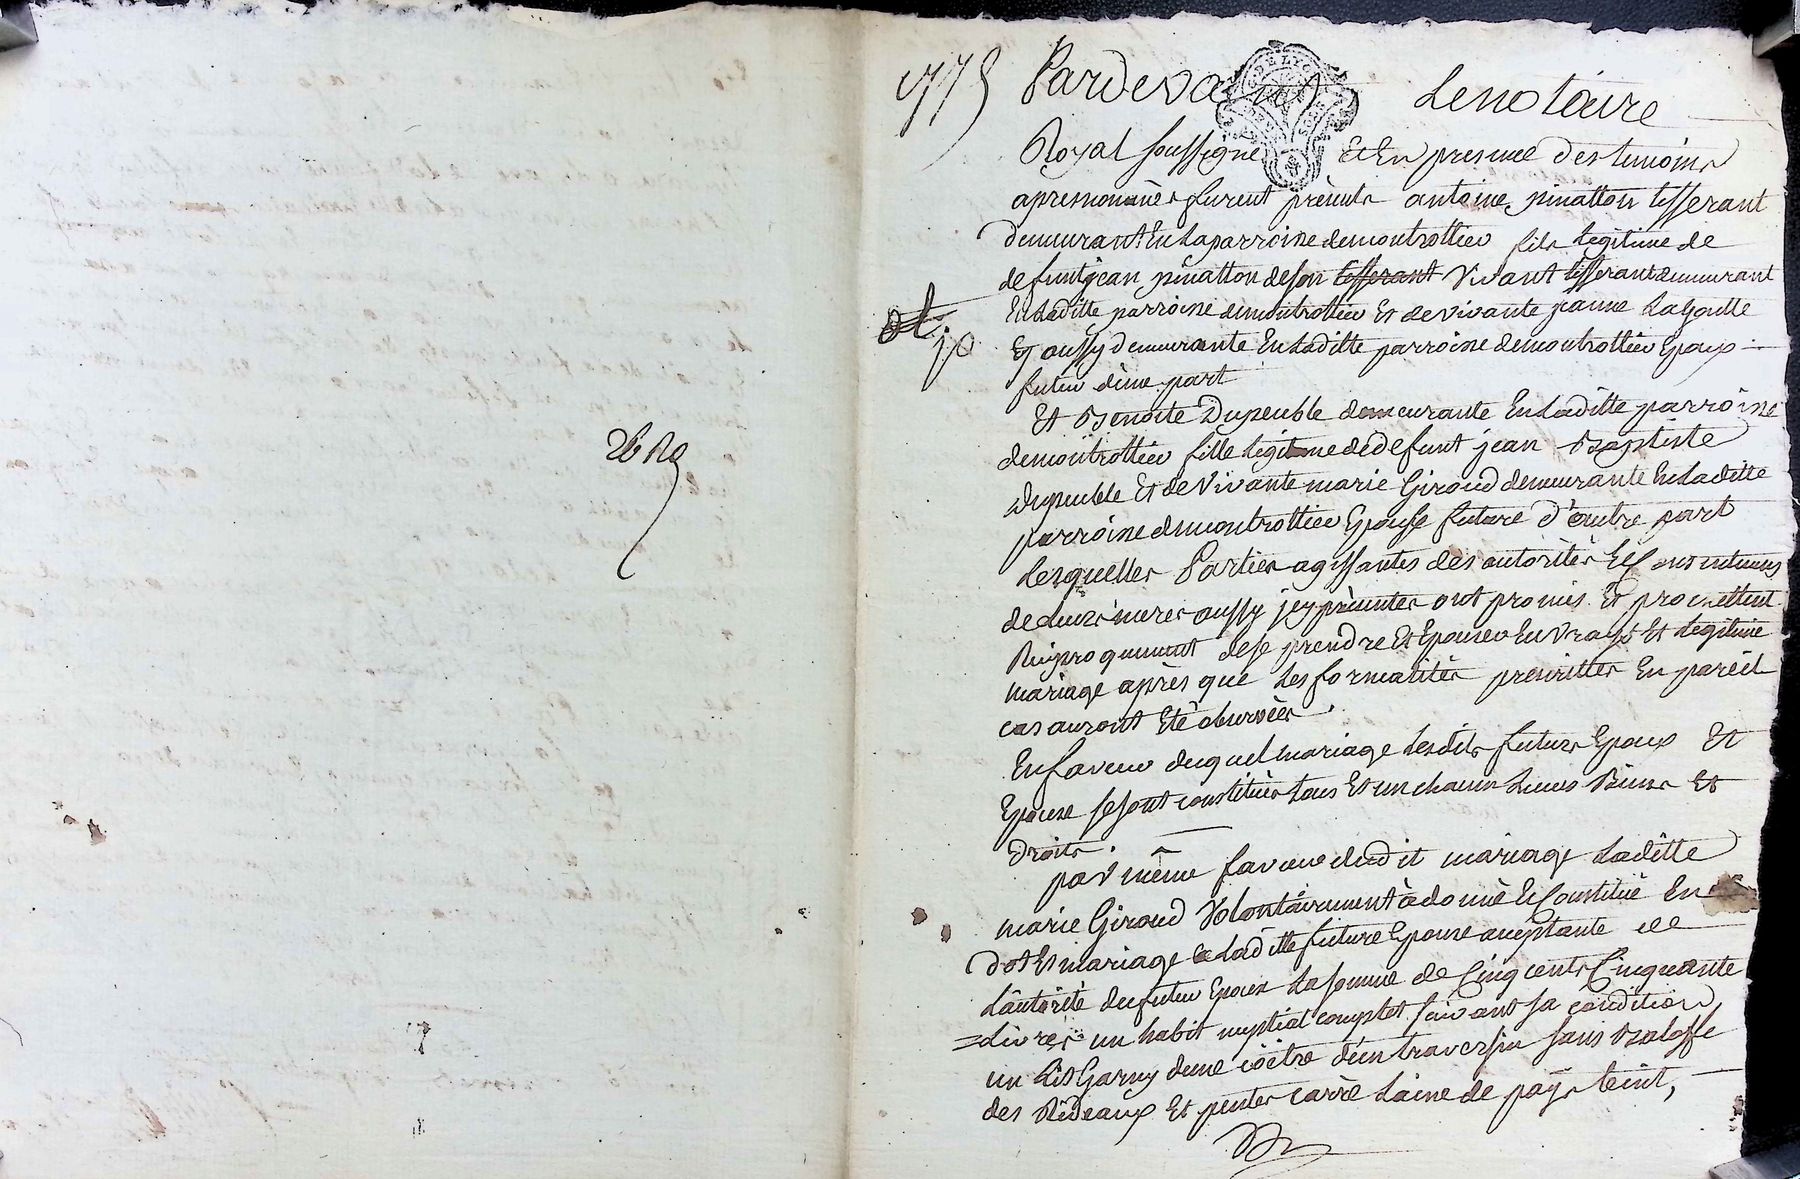 1775 Pardevant Le notaire
Royal soussigné Et En presence des temoins
apres nommés furent présents antoine pinatton tisserant
demeurant En La parroisse de montrottier fils Legitime de
defunt jean pinatton de son tisserant vivant tisserant demeurant
En Laditte parroisse de montrottier Et de vivante jeanne Lagoutte
Et aussy demeurante En Laditte parroisse de montrottier Epoux
futur d'une part
Et Benoite Dupeuble demeurante En Laditte parroisse
de montrottier fille Legitime de defunt jean Baptiste
Dupeuble Et de Vivante marie Giroud demeurante En Laditte
parroisse de montrottier Epouse future d'autre part
Lesquelles Parties agissantes des autorités Et Consentements
de Leurs meres aussy jcy présentes ont promis Et promettent
Reciproquement de se prendre Et Epouser En Vray Et Legitime
mariage après que Les formalités prescrittes En pareil
cas auront Eté observées
En faveur duquel mariage Lesdits futurs Epoux Et
Epouse se sont constitués tous Et un chacun Leurs Biens Et
Droits
par même faveur dudit mariage Laditte
marie Giroud Volontairement à donné Et Constitué En
Dot Et mariage a Laditte future Epouse acceptante de
L'autorité du futur Epoux La somme de Cinq cents Cinquante
Livres un habit nuptial complet suivant sa condition
un Lit Garny d'une coëtre d'un traversin sans Baloffe
des Rideaux Et pentes carré Laine de pays teint,